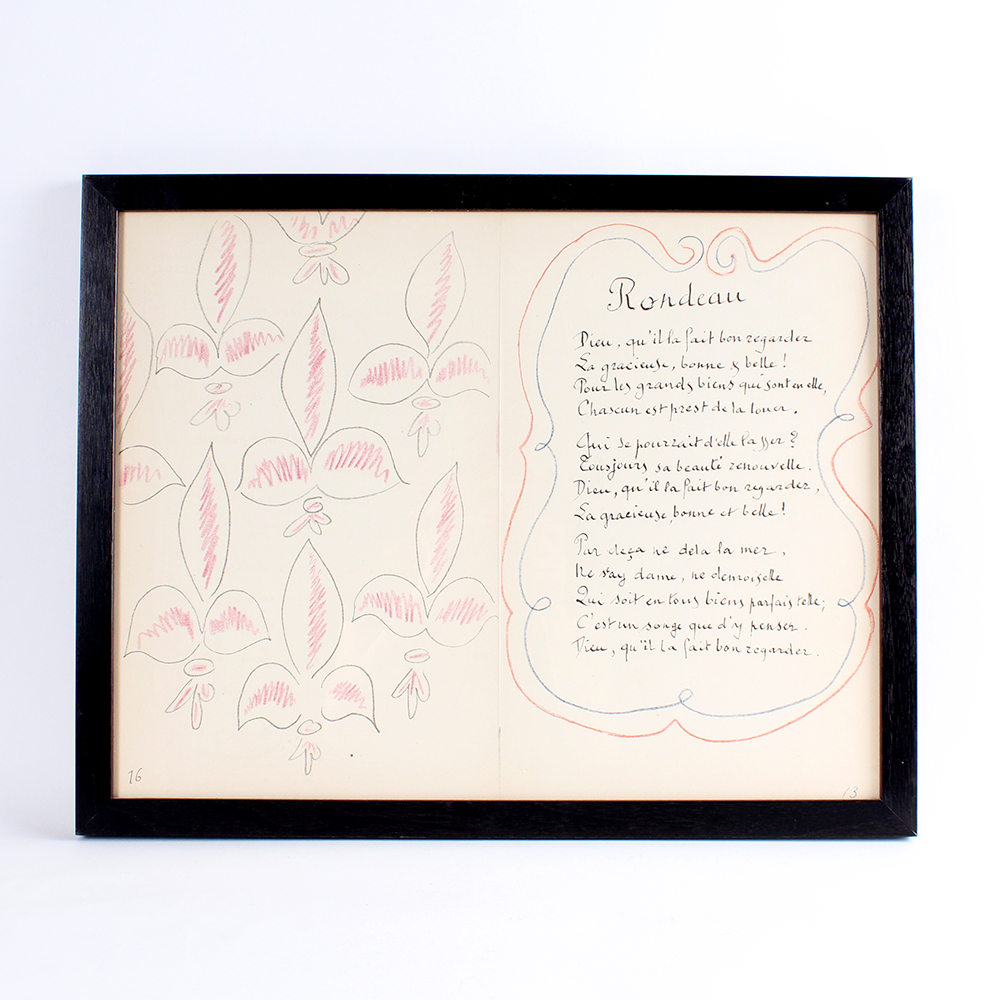 16
Rondeau
Dieu, qu'il la fait bon regarder
La gracieuse, bonne & belle !
Pour les grands biens qui sont en elle,
Chascun est prest de la louer.
Qui se pourrait d'elle lasser ?
Tousjours sa beauté renouvelle.
Dieu, qu'il la fait bon regarder,
La gracieuse, bonne et belle !
Par deça ne dela la mer,
Ne sçay dame, ne demoiselle
Qui soit en tous biens parfais telle ;
C'est un songe que d'y penser.
Dieu, qu'il la fait bon regarder.
13